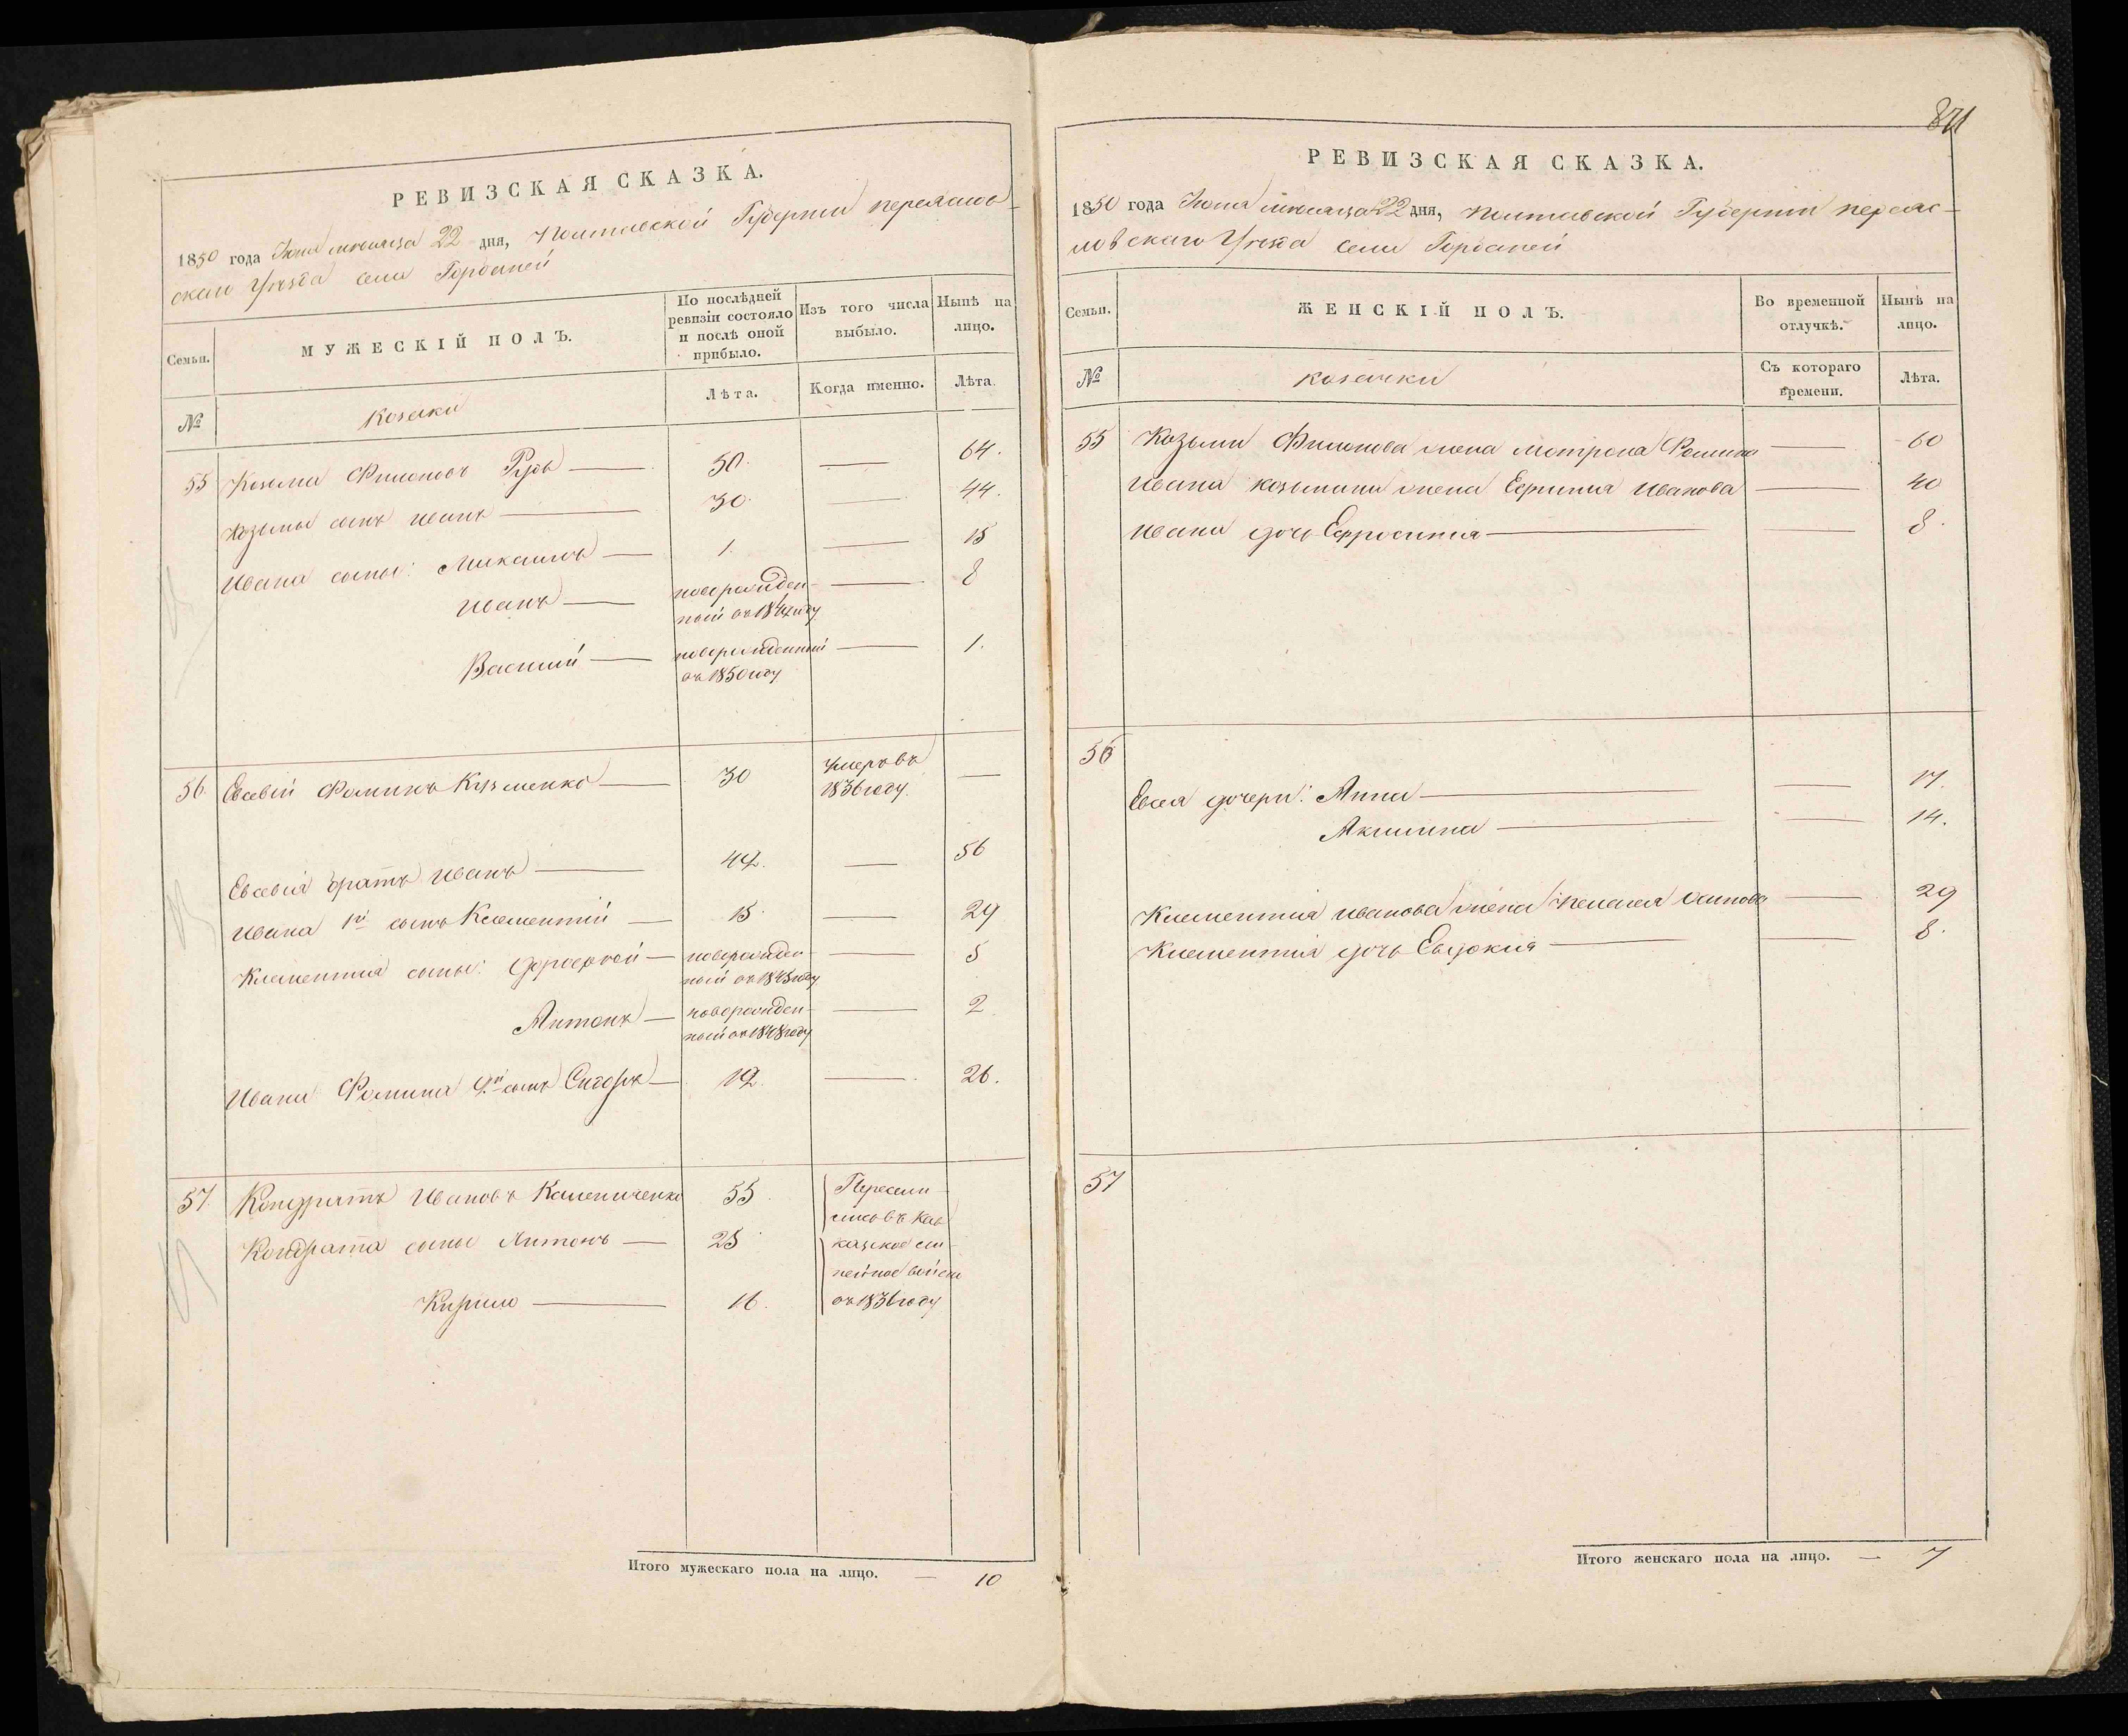 РЕВИЗСКАЯ СКАЗКА.
1850 года Июня месяца 22 дня, Полтавской Губернии переяслов-
скаго Уезда села Горбаней
Семьи. МУЖЕСКІЙ ПОЛЪ. По послѣдней ревизіи состояло и послѣ оной прибыло. Изъ того числа выбыло. Нынѣ на лицо.
№ Козаки Лѣта. Когда именно. Лѣта.
55 Козьма Филоновъ Рудь — 50. — 64.
Козьмы сынъ иванъ — 30. — 44.
Ивана сыны: Михаилъ — 1. — 15
иванъ — новорожден- — 8
ный въ 1842 году
Василий — новорожденный — 1.
въ 1850 году
56. Евсевій Фоминъ Кузменко — 30 умеръ въ —
1836 году.
Евсевія братъ иванъ — 42. — 56
Ивана 1й сынъ Клементий — 15. — 29
Клементия сыны: Дорофей — новорожден- — 5
ный въ 1845 году
Антонъ — новорожден- — 2
ный въ 1848 году
Ивана Фомина 2й сынъ Сидоръ — 12. — 26.
57. Кондратъ Ивановъ Калениченко 55. Пересели-
лись въ Кав-
Кондрата сыны Антонъ — 25 казское ли-
нейное войско
Кирило — 16. въ 1836 году
Итого мужескаго пола на лицо. — 10
871
РЕВИЗСКАЯ СКАЗКА.
1850 года Июня месяца 22 дня, Полтавской Губернии переяс-
ловскаго Уезда села Горбаней
Семьи. ЖЕНСКІЙ ПОЛЪ. Во временной отлучкѣ. Нынѣ на лицо.
№ козачки Съ котораго времени. Лѣта.
55 Козьми Филонова жена мотрона Фомина — 60
Ивана козьмина жена Ефимия Иванова — 40
Ивана дочь Ефросиния — 8.
56
Евсея дочери: Анна — 17.
Акилина — 14.
Клементия иванова жена Пелагея Осипова — 29
Клементія дочь Евдокия — 8.
57
Итого женскаго пола на лицо. — 7